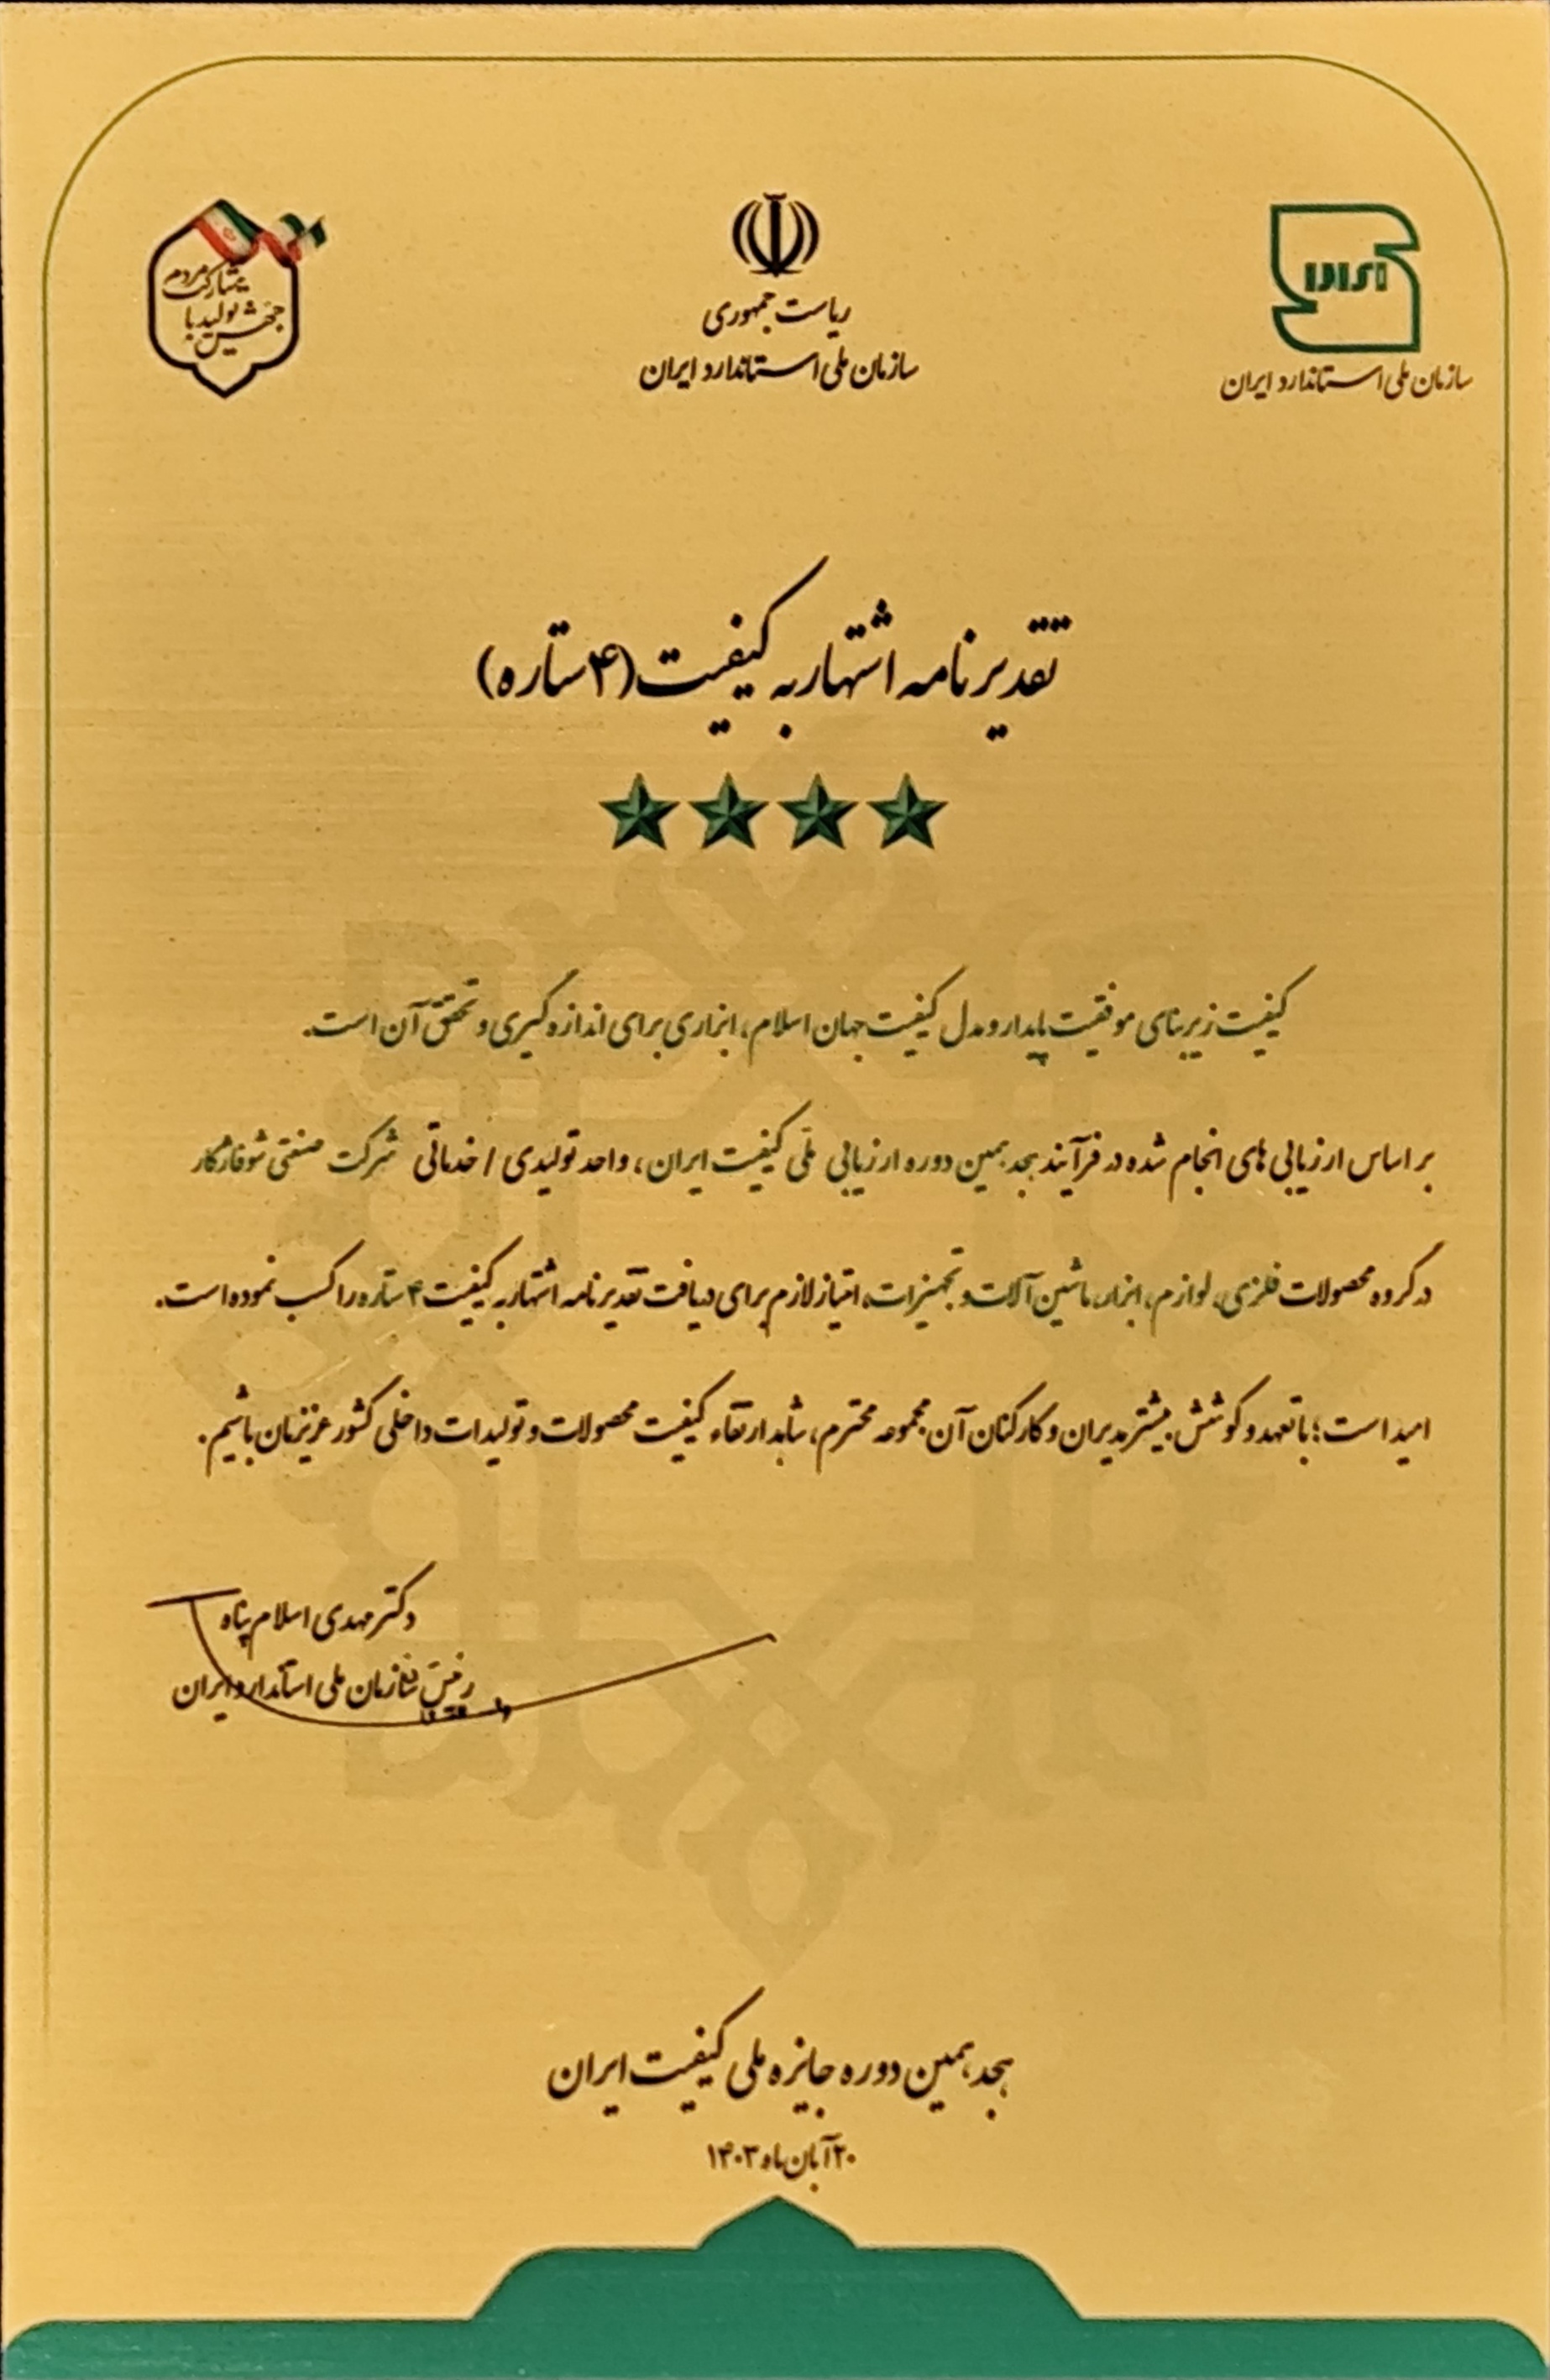 ایران
سازمان ملی استاندارد ایران
ریاست جمهوری
سازمان ملی استاندارد ایران
جهش تولید با
مشارکت مردم
تقدیرنامه اشتهار به کیفیت (۴ ستاره)
کیفیت زیربنای موفقیت پایدار و مدل کیفیت جهان اسلام، ابزاری برای اندازه گیری و تحقق آن است.
بر اساس ارزیابی های انجام شده در فرآیند هجدهمین دوره ارزیابی ملی کیفیت ایران، واحد تولیدی / خدماتی شرکت صنعتی شوفاژکار
در گروه محصولات فلزی، لوازم، ابزار، ماشین آلات و تجهیزات، امتیاز لازم برای دریافت تقدیرنامه اشتهار به کیفیت ۴ ستاره را کسب نموده است.
امید است؛ با تعهد و کوشش بیشتر مدیران و کارکنان آن مجموعه محترم، شاهد ارتقاء کیفیت محصولات و تولیدات داخلی کشور عزیزمان باشیم.
دکتر مهدی اسلام پناه
رئیس سازمان ملی استاندارد ایران
هجدهمین دوره جایزه ملی کیفیت ایران
۲۰ آبان ماه ۱۴۰۳